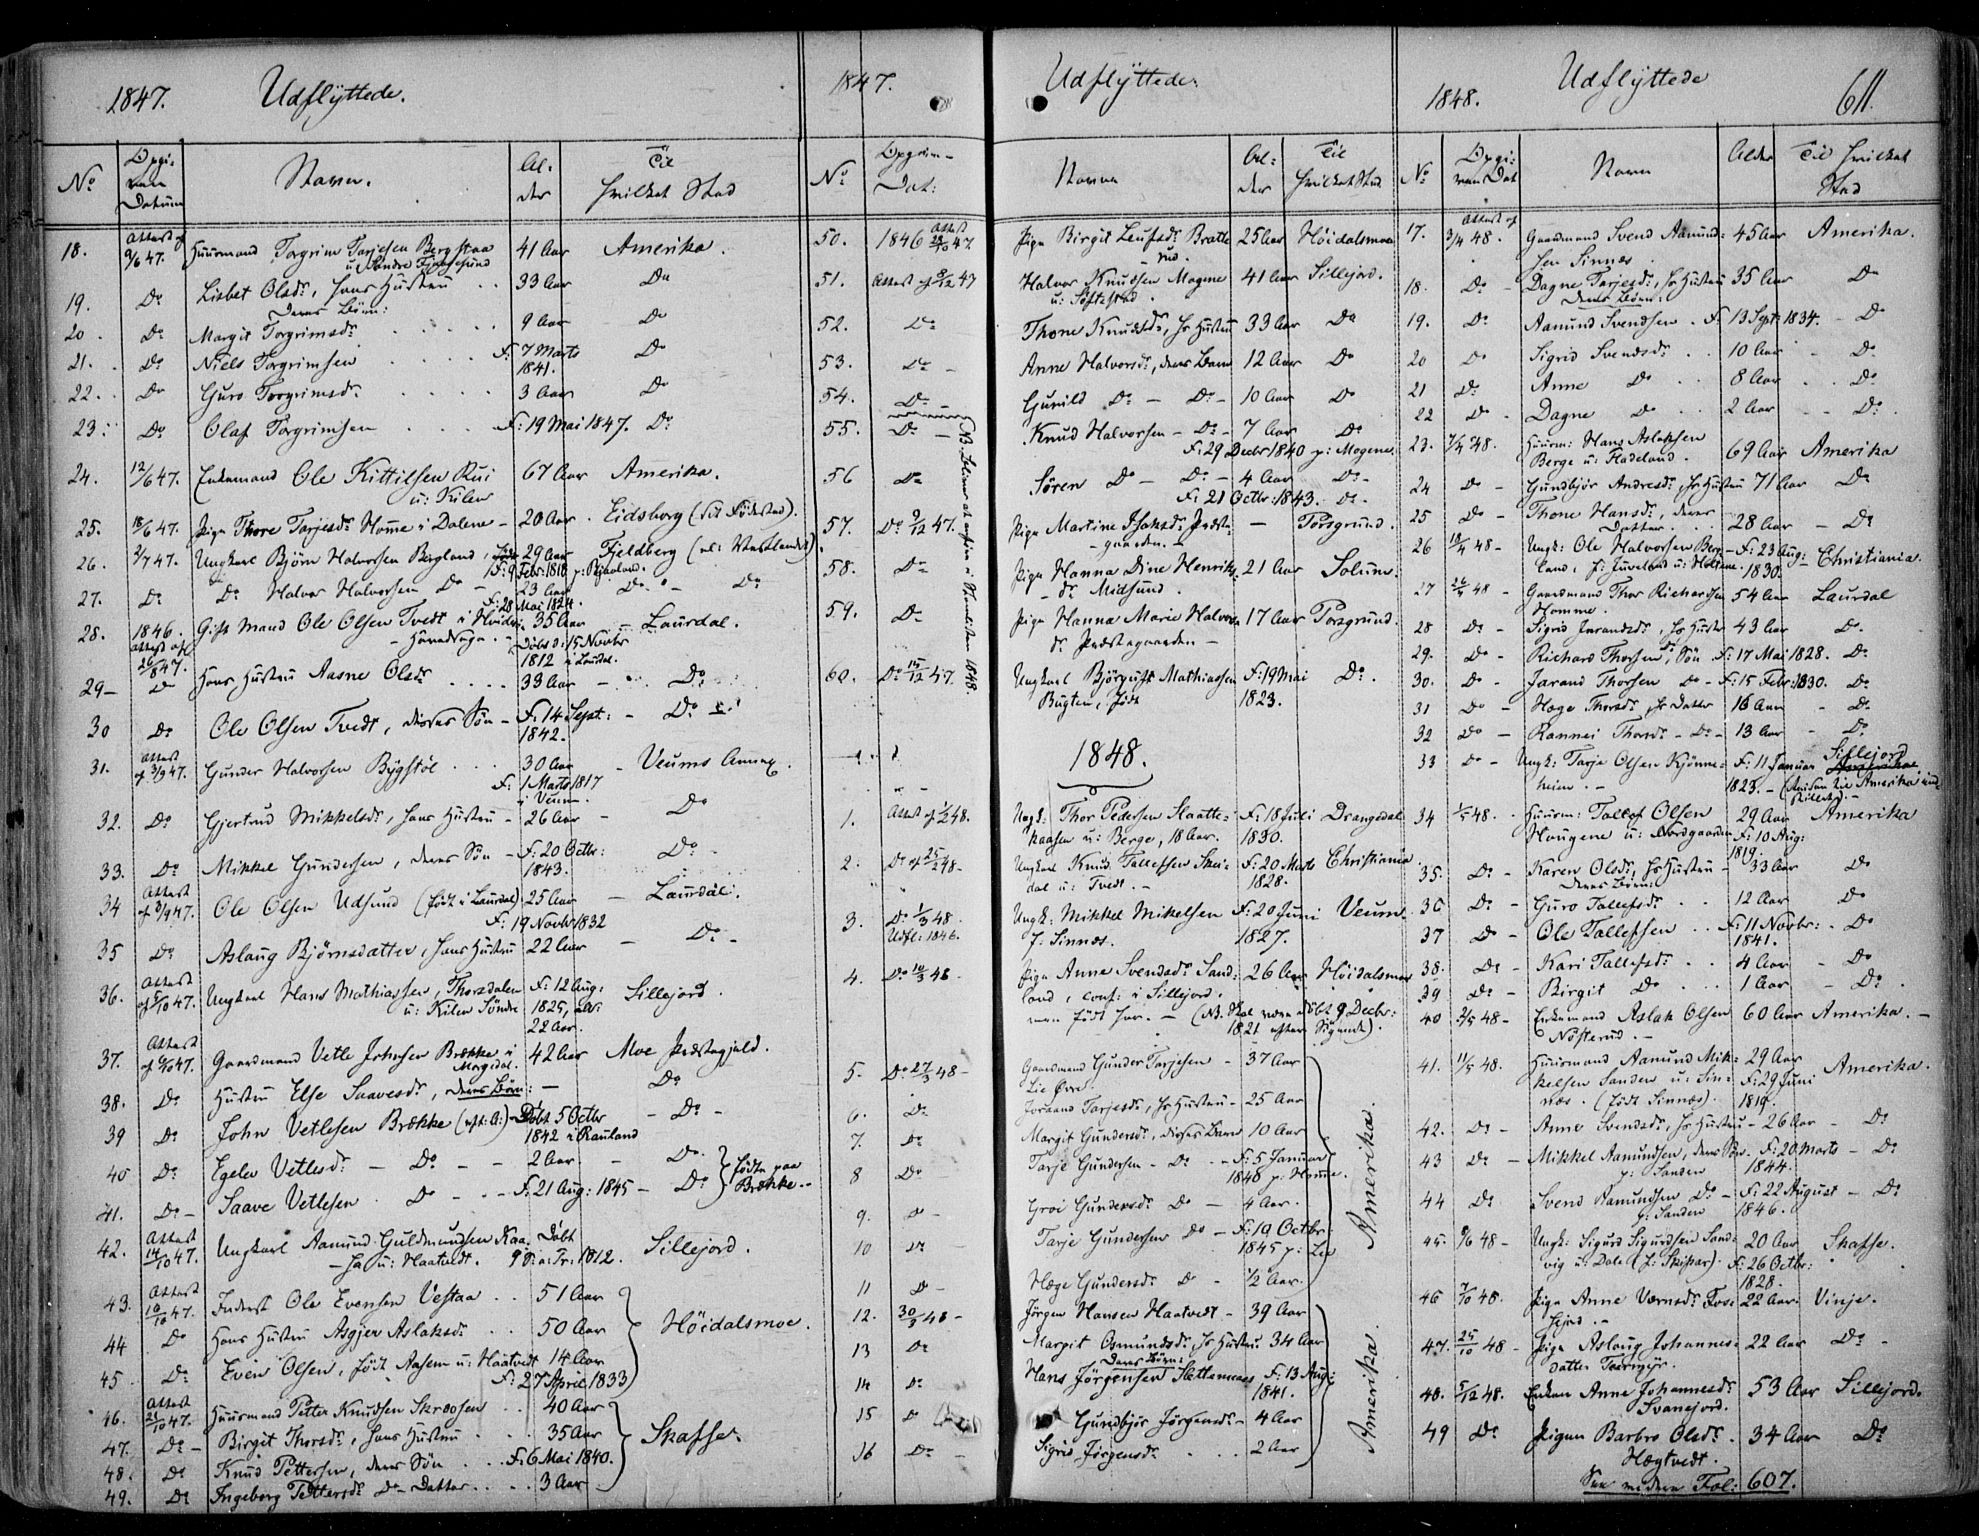 1847. Udflÿttede.
No Opgi- Navn. Al- Til
ven der hvilket Sted
Datum
18. Attest af Huusmand Torgrim Tarjesen Bergstaa 41 Aar Amerika.
9/6 47. u: Søndre Fjaagesund
19. Do Lisbet Olsdr, hans Hustru .. 33 Aar Do
deres Børn:
20. Do Margit Torgrimsdr 9 Aar Do
21. Do Niels Torgrimsen F: 7 Marts Do
1841.
22. Do Guro Torgrimsdr 3 Aar Do
23. Do Olaf Torgrimsen F: 19 Mai 1847. Do
24. 12/6 47. Enkemand Ole Kittilsen Rui 67 Aar Amerika.
u: Kilen
25. 18/6 47. Pige Thore Tarjesdr Homme i Dalene - 20 Aar . Eidsborg (sit Fødested).
26. 2/7 47. Ungkarl Bjørn Halvorsen Bergland, 29 Aar Fjeldberg (al: Vestlandet).
F: 9 Febr: 1818
27. Do Do Halvor Halvorsen Do - 23 Aar Do - Do
F: 28 Mai 1824.
28. 1846. Gift Mand Ole Olsen Tvedt i Hvidse- 35 Aar - Laurdal.
Attest af Døbt d: 15 Novbr
26/8 47. 1812 i Laurdal.
29 - Do Hans Hustru Aasne Olsdr .... 33 Aar - Do
30 Do Ole Olsen Tvedt, disses Søn - F: 14 Sept: - Do
1842.
31. Attest Gunder Halvorsen Bÿgstøl ... 30 Aar - Veums Annex.
af 3/9 47. F: 1 Marts 1817
i Veum.
32. Do Gjertrud Mikkelsdr, hans Hustru - 26 Aar - Do
33. Do Mikkel Gundersen, deres Søn - F: 20 Octbr: Do
1843.
34 Attest Ole Olsen Udsund (født i Laurdal) 25 Aar - Laurdal.
af 3/9 47. F: 19 Novbr 1832
35 Do Aslaug Bjørnsdatter, hans Hustru 22 Aar - Do -
36. Attest Ungkarl Hans Mathiassen, Thorsdalen F: 12 Aug: Sillejord.
af 5/10 47. u: Kilen Søndre 1825, al:
22 Aar.
37. Attest Gaardmand Vetle Johnsen Brække i 42 Aar Moe Præstegjeld.
af 6/10 47. Morgedal.
38. Do Hustru Else Saavesdr, deres Børn: - Do
39 Do John Vetlesen Brække - Døbt 5 Octbr - Do -
1842 i Rauland
40 Do Egelev Vetlesdr - Do - - 2 Aar. - Do. fødte paa
41. Do - Saave Vetlesen Do - - F: 21 Aug: 1845 - Do Brække.
42. Attest Ungkarl Aamund Guldmundsen Kaa- Døbt Sillejord.
14/10 47. - sa u: Haatvedt. 9 S: a: Tr: 1812.
43. Attest Inderst Ole Evensen Vestaa .. 51 Aar
16/10 47. Høidalsmoe.
44 Do Hans Hustru Asgjer Aslaksdr .. 50 Aar
45. Do Even Olsen, født Aasem u: Haatvedt 14 Aar
F: 27 April 1833
46. Attest Huusmand Petter Knudsen Skreosen .. 40 Aar
21/10 47.
47. Do - Birgit Thorsdr, hans Hustru .... 35 Aar Skafse.
48. Do Knud Pettersen, deres Søn ... F: 6 Mai 1840.
49. Do Ingeborg Pettersdr Do - Datter .... 3 Aar
1847. Udflÿttede.
No Opgiven- Navn Al- Til
Dat: der hvilket Sted
50. 1846 Attest Pige Birgit Leufsdr Bratte- 25 Aar Høidalsmoe
29/10 47. rud.
51. Attest af 8/12 47 Halvor Knudsen Mogene 41 Aar Sillejord.
u: Søftestad.
52. Do Thone Knudsdr, hs Hustru 33 Aar Do
53. Do - Anne Halvorsdr, deres Barn 12 Aar Do
54. Do - Gunild Do - Do - 10 Aar Do
55. Do - Knud Halvorsen - Do - 7 Aar Do
F: 29 Decbr 1840 p: Mogene.
56 Do Søren Do - Do - 4 Aar Do -
F: 21 Octbr: 1843. Do.
57. Do 9/12 47. Pige Martine Isaksdr Præste- - Porsgrund.
gaarden. -
58. Do Pige Hanna Dine Henriks- 21 Aar Solum.
dr Midsund.
59. Do Pige Hanna Marie Halvors- 17 Aar Porsgrund.
dr Præstegaarden -
60. Do 15/12 47. Ungkarl Björguft Mathiassen F: 19 Mai Do.
Bugten, født 1823.
1848.
1. Attest af 1/2 48. Ungk: Thor Pedersen Slaatte- F: 18 Juli Drangedal
kaasen u: Berge, 18 Aar. 1830.
2. Do af 25/2 48 - Ungkarl Knud Tallefsen Skei- F: 20 Marts Christiania.
dal u: Tvedt. - 1828.
3. Do 1/3 48. Ungk: Mikkel Mikelsen F: 20 Juni Veum.
Udfl: 1846. f: Sinnes. 1827.
4. Do 18/3 48 - Pige Anne Svendsdr Sand- 26 Aar Høidalsmoe
land, conf: i Sillejord.
men født her. - (NB. Skal være døbt 9 Decbr:
1821 efter Sigende).
5. Do 27/3 48 - Gaardmand Gunder Tarjesen - 37 Aar
Lie Øvre.
6. Do Jorand Tarjesdr, hs Hustru - 25 Aar
7. Do Margit Gundersdr, disses Barn 10 Aar Amerika.
8 Do Tarje Gundersen - Do - F: 5 Januar
1840 p: Homme.
9. Do - Groe Gundersdr Do - 4 Aar.
10 Do Tarje Gundersen Do - F: 19 Octbr:
1845 p: Lie
11 Do - Hæge Gundersdr Do - 1/2 Aar.
12. 30/3 48 - Jørgen Hansen Haatvedt - 39 Aar
13 Do Margit Osmundsdr, hs Hustru 34 Aar
Deres Børn:
14 Do Hans Jørgensen Slettemeas F: 13 Aug: Amerika.
1841.
15 Do Gundbjør Jørgensdr - 4 Aar
16 Do - Sigrid Jørgensdr 2 Aar
1848. Udflÿttede 611.
No Opgi- Navn Alder Til hvilket
ven Dat Sted
17. Attest af Gaardmand Svend Aamund- 45 Aar Amerika.
3/4 48. sen Sinnes.
18. Do - Dagne Tarjesdr, hs Hustru 35 Aar Do
Deres Børn:
19. Do Aamund Svendsen . F: 13 Sept: 1834. - Do
20 Do Sigrid Svendsdr .. 10 Aar - Do
21 Do Anne Do .. 8 Aar .. Do
22 Do - Dagne Do .. 2 Aar - - Do
23. 7/4 48. Huusm: Hans Aslaksen 69 Aar Amerika
Berge u: Fladeland.
24 Do - Gundbjør Andresdr, hs Hustru 71 Aar Do
25 Do - Thone Hansdr, deres 28 Aar - Do
Datter...
26 18/4 48 - Ungk: Ole Halvorsen Berg- F: 23 Aug: Christiania.
land, f: Juveland u: Homme. 1830.
27 26/4 48 - Gaardmand Thor Richardsen 54 Aar Laurdal
Homme.
28 Do - Sigrid Jarandsdr, hs Hustr 43 Aar Do.
29. Do - Richard Thorsen, Søn F: 17 Mai 1828. Do
30. Do - Jarand Thorsen Do - F: 15 Febr: 1830. Do
31 Do - Hæge Thorsdr, hs Datter 16 Aar - Do
32 Do - Rannei Thorsdr - Do - 13 Aar - Do
33 Do - Ungk: Tarje Olsen Kjønne- F: 11 Januar Sillejord
heim. - 1823. -
34 1/5 48. Huusm: Tallef Olsen 29 Aar Amerika
Haugene u: Nordgaarden F: 10 Aug:
1819.
35. Do - Karen Olsdr, hs Hustru - 33 Aar Do
Deres Børn:
36 Do - Guro Tallefsdr .. 12 Aar Do
37 Do - Ole Tallefsen .. F: 11 Novbr: - Do
1841.
38. Do - Kari Tallefsdr .. 4 Aar - Do
39 Do - Birgit Do ... 1 Aar - Do
40 2/5 48 - Enkemand Aslak Olsen 60 Aar Amerika. -
Nösterud. -
41. 11/5 48. Huusmand Aamund Mik- 29 Aar Amerika.
kelsen Sanden u: Sin- F: 29 Juni
nes. (født Sinnes) 1819.
42. Do - Anne Svendsdr, hs Hustru - 26 Aar - Do
43 Do - Mikkel Aamundsen, deres Søn. F: 20 Marts - Do
p: Sanden 1844.
44 Do Svend Aamundsen Do - F: 22 August - Do
p: Sanden 1846.
45. 9/6 48 - Ungk: Sigurd Sigurdsen Sand- 20 Aar Skafse.
vig u: Dale F: 26 Octbr:
1828.
46 7/10 48. Pige Anne Værnsdr Fos- 22 Aar. Vinje.
47. 25/10 48 - Pige Aslaug Johannes- 22 Aar Do -
datter
48. 5/12 48. Enken Anne Johannesdr 53 Aar Sillejord.
Svanejord.
49 Do Pigen Barbro Olsdr. 34 Aar Do
Hægtvedt.
See videre Fol: 607.